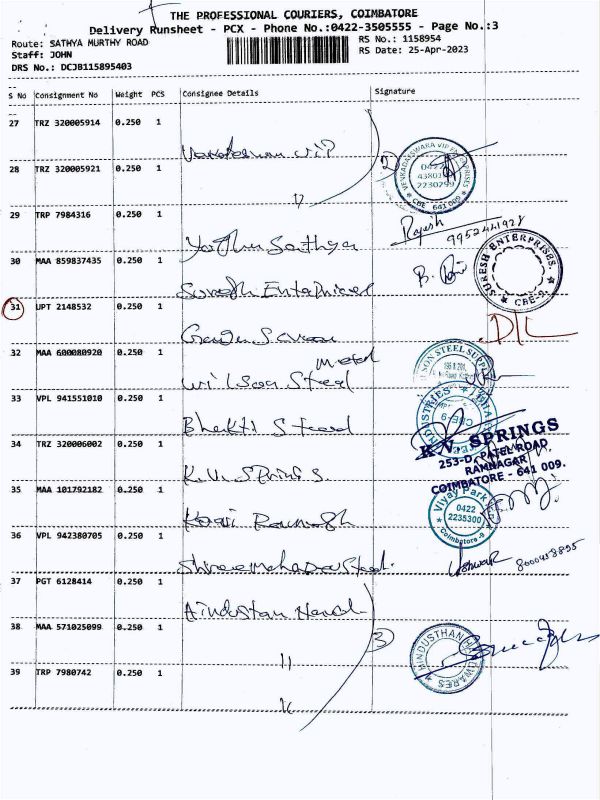 THE PROFESSIONAL COURIERS, COIMBATORE
Delivery Runsheet - PCX - Phone No.:0422-3505555 - Page No.:3
Route: SATHYA MURTHY ROAD
RS No.: 1158954
Staff: JOHN
RS Date: 25-Apr-2023
DRS No.: DCJB115895403
S No Consignment No Weight PCS Consignee Details Signature
27 TRZ 320005914 0.250 1
28 TRZ 320005921 0.250 1
2)
0422
2230299
CBE 641 009
29 TRP 7984316 0.250 1
Rajesh
9952441928
30 MAA 859837435 0.250 1
Suresh Enterprises
SURESH ENTERPRISES.
CBE-9
31 UPT 2148532 0.250 1
D/L
32 MAA 600080920 0.250 1
Wilson Steel
SON STEEL SUPPL
33 VPL 941551010 0.250 1
Bhakti Steel
CBE-9
34 TRZ 320006002 0.250 1
K.V. Springs
K.N. SPRINGS
253-D, PATEL ROAD
RAMNAGAR
COIMBATORE - 641 009.
35 MAA 101792182 0.250 1
Vijay Park
0422
2235300
Coimbatore-9
36 VPL 942380705 0.250 1
Shree Mahadev Steel.
Ishwar
37 PGT 6128414 0.250 1
Hindustan
38 MAA 571025099 0.250 1
11
3)
HINDUSTHAN HARDWARES
39 TRP 7980742 0.250 1